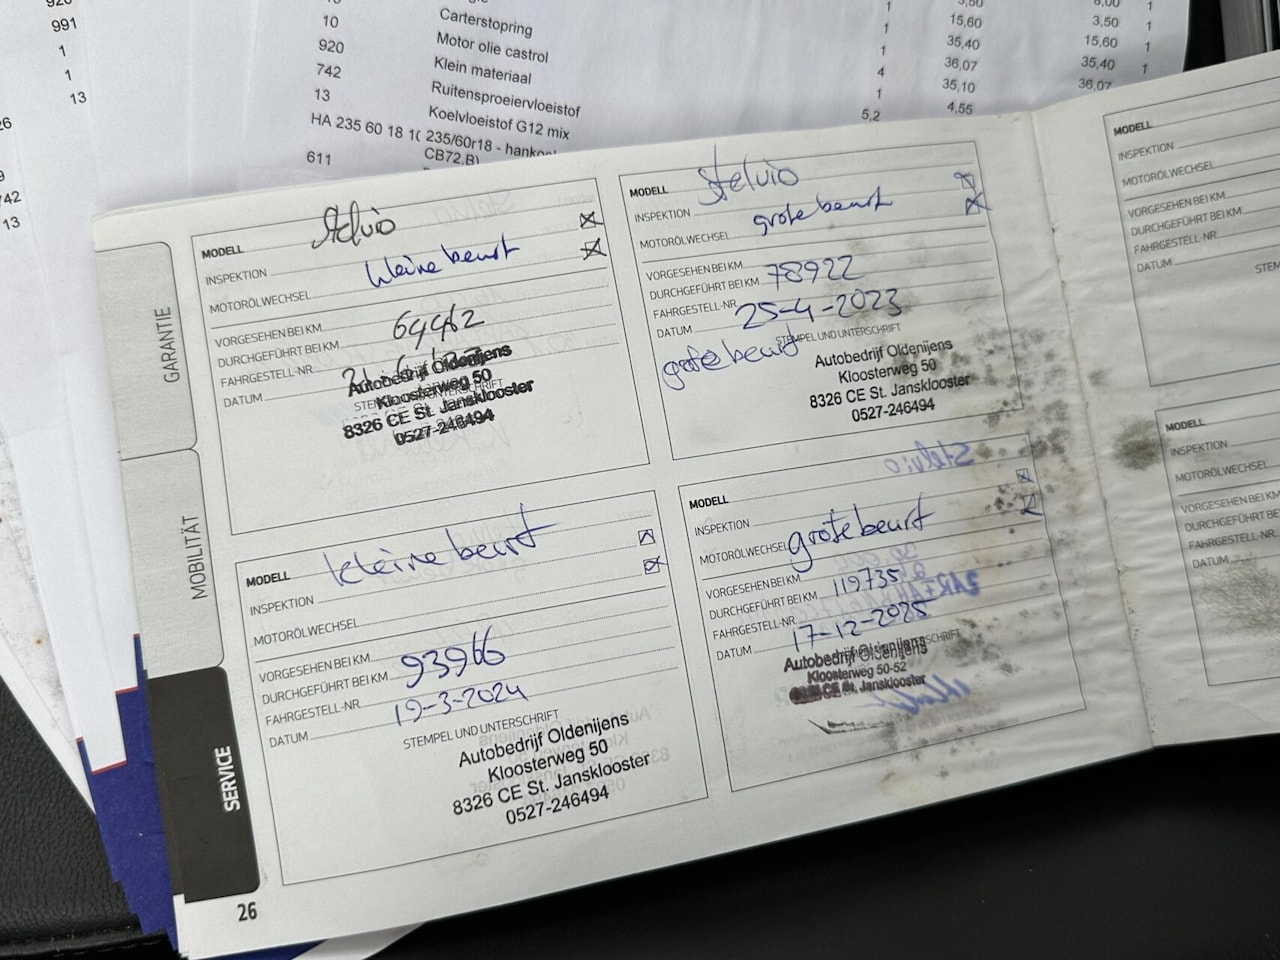 991
1
1
13
742
13
10
920
742
13
HA 235 60 18 1(
611
Carterstopring
Motor olie castrol
Klein materiaal
Ruitensproeiervloeistof
Koelvloeistof G12 mix
235/60r18 - hankook
CB72,B)
1
1
1
4
1
5,2
15,60
35,40
36,07
35,10
4,55
6,00
3,50
15,60
35,40
36,07
1
1
1
1
GARANTIE
MOBILITÄT
SERVICE
MODELL Stelvio
INSPEKTION kleine beurt
MOTORÖLWECHSEL
VORGESEHEN BEI KM
DURCHGEFÜHRT BEI KM 64462
FAHRGESTELL-NR.
DATUM
STEMPEL UND UNTERSCHRIFT
Autobedrijf Oldenijens
Kloosterweg 50
8326 CE St. Jansklooster
0527-246494
MODELL Stelvio
INSPEKTION grote beurt
MOTORÖLWECHSEL
VORGESEHEN BEI KM
DURCHGEFÜHRT BEI KM 78922
FAHRGESTELL-NR.
DATUM 25-4-2023
grote beurt STEMPEL UND UNTERSCHRIFT
Autobedrijf Oldenijens
Kloosterweg 50
8326 CE St. Jansklooster
0527-246494
kleine beurt
MODELL
INSPEKTION
MOTORÖLWECHSEL
VORGESEHEN BEI KM
DURCHGEFÜHRT BEI KM 93966
FAHRGESTELL-NR.
DATUM 19-3-2024
STEMPEL UND UNTERSCHRIFT
Autobedrijf Oldenijens
Kloosterweg 50
8326 CE St. Jansklooster
0527-246494
Stelvio
MODELL
INSPEKTION
MOTORÖLWECHSEL grote beurt
VORGESEHEN BEI KM
DURCHGEFÜHRT BEI KM 119735
FAHRGESTELL-NR.
DATUM 17-12-2025
Autobedrijf Oldenijens
Kloosterweg 50-52
CE St. Jansklooster
26
MODELL
INSPEKTION
MOTORÖLWECHSEL
VORGESEHEN BEI KM
DURCHGEFÜHRT BEI
FAHRGESTELL-NR.
DATUM
MODELL
INSPEKTION
MOTORÖLWECHSEL
VORGESEHEN BEI KM
DURCHGEFÜHRT BEI KM
FAHRGESTELL-NR.
DATUM